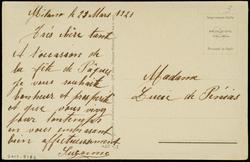 Milano le 28 Mars 1921
Très chère tante
A l'occasion de
la fête de Pâques
je vous souhait
bonheur et prospérité
et que vous vivez
pour longtemps
en vous embrassant
bien affectueusement
Suzanne
Madame
Lucie de